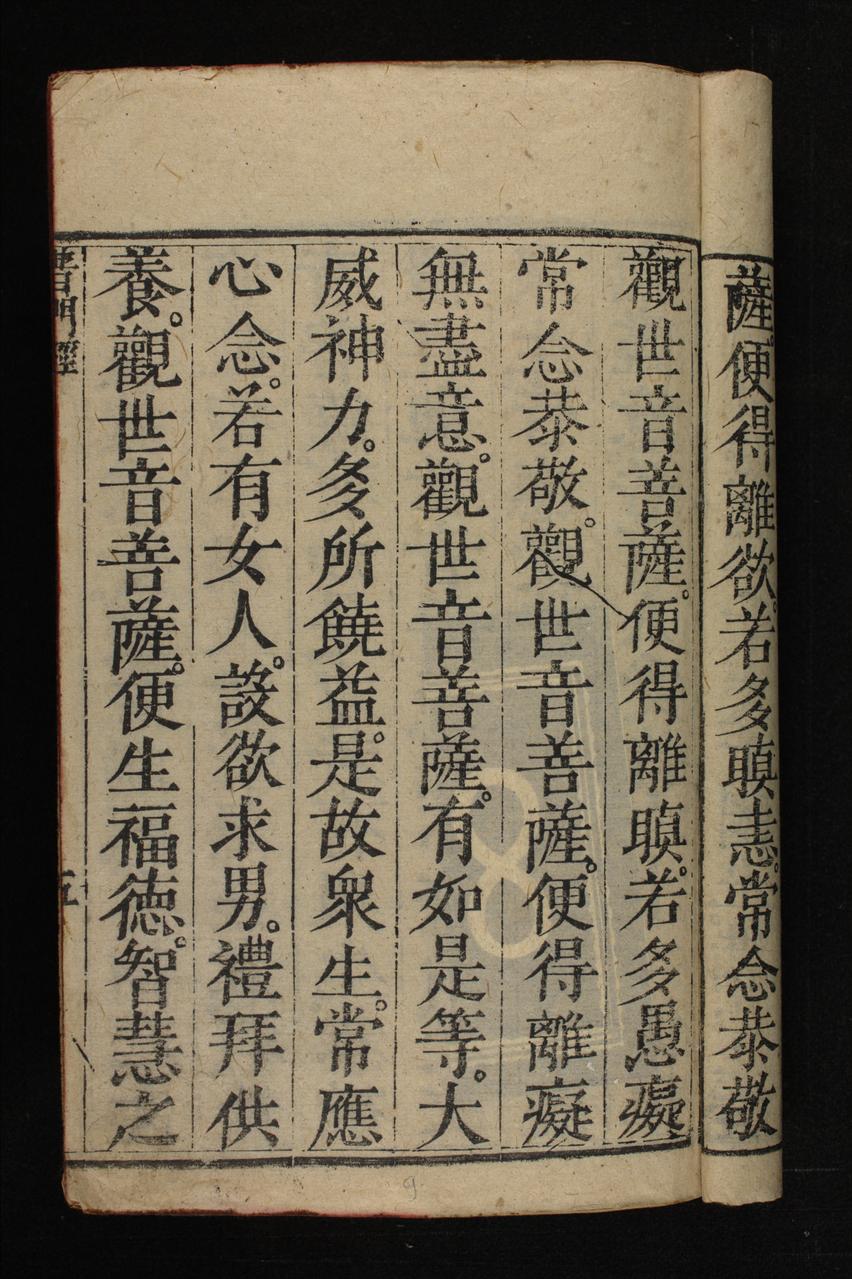 薩。便得離欲。若多瞋恚。常念恭敬
觀世音菩薩。便得離瞋。若多愚癡
常念恭敬。觀世音菩薩。便得離癡
無盡意。觀世音菩薩。有如是等。大
威神力。多所饒益。是故衆生。常應
心念。若有女人。設欲求男。禮拜供
養。觀世音菩薩。便生福德。智慧之
普門經
五
9